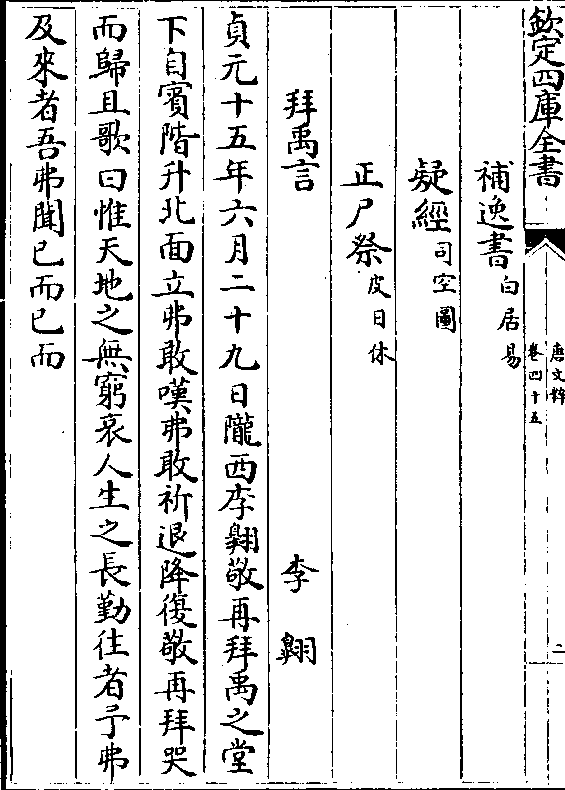 欽定四庫全書
唐文粹
卷四十五
二
補逸書白居易
疑經司空圖
正尸祭皮日休
拜禹言 李翺
貞元十五年六月二十九日隴西李翺敬再拜禹之堂
下自賓階升北面立弗敢嘆弗敢祈退降復敬再拜哭
而歸且歌曰惟天地之無窮哀人生之長勤往者予弗
及來者吾弗聞已而已而